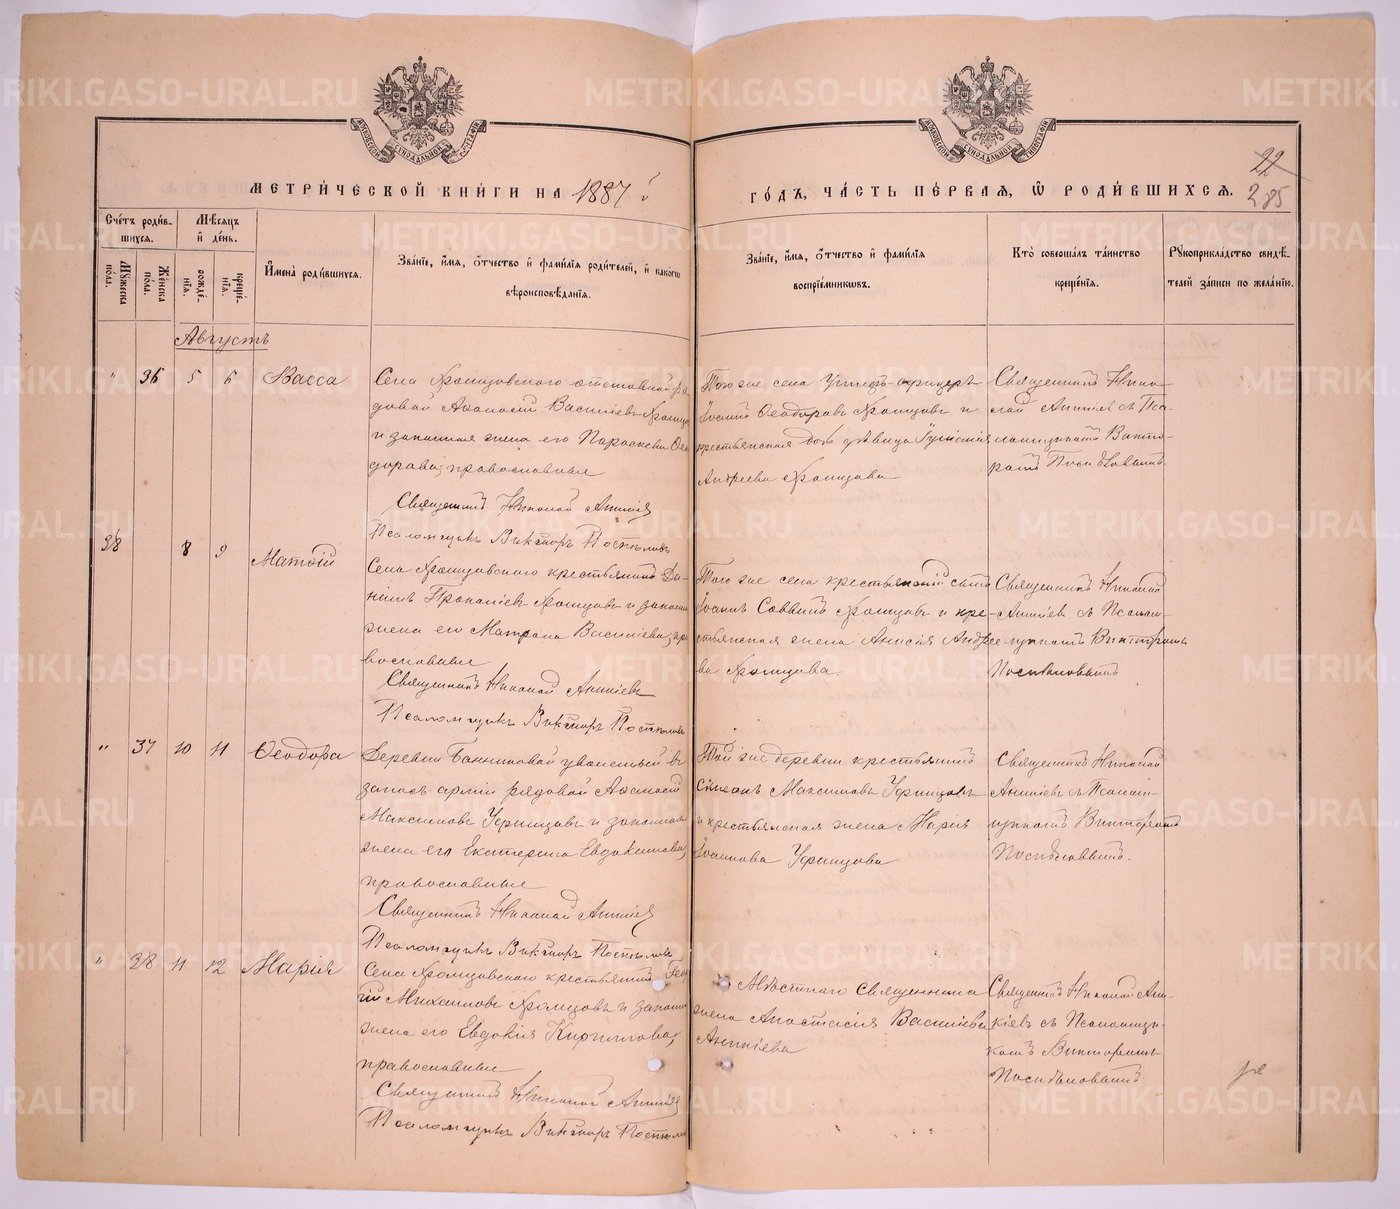 МОСКОВСКОЙ СѴНОДАЛЬНОЙ ТИПОГРАФІИ
МОСКОВСКОЙ СѴНОДАЛЬНОЙ ТИПОГРАФІИ
22
285
МЕТРИ́ЧЕСКОЙ КНИ́ГИ НА 1887 й
ГО́ДЪ, ЧА́СТЬ ПЕ́РВАЯ, Ѿ РОДИ́ВШИХСЯ.
Сче́тъ роди́в-
шихся.
Му́жеска по́ла.
Же́нска по́ла.
Мѣ́сяцъ
и҆ де́нь.
рожде́-
нїя.
креще́-
нїя.
И҆мена̀ роди́вшихся.
Зва́нїе, и҆́мя, ѻ҆́тчество и҆ фами́лїя роди́телей, и҆ како́гѡ
вѣроисповѣ́данїя.
Зва́нїе, и҆́мя, ѻ҆́тчество и҆ фами́лїя
воспрїе́мникѡвъ.
Кто̀ соверша́лъ та́инство
креще́нїя.
Рꙋкоприкла́дство свидѣ́-
телей за́писи по жела́нїю.
Августъ
" 36 5 6 Васса
Села Храмцовского отставной ря
довой Аѳанасій Васильевъ Храмцо
и законная жена его Параскева Ѳео
дорова, православные
Священникъ Николай Аникіев
Псаломщикъ Викторъ Поспѣловъ
Того же села Унтеръ-офицеръ
Іоаннъ Ѳеодоровъ Храмцовъ и
крестьянская дочь дѣвица
Андреева Храмцова
Священникъ Нико-
лай Аникіевъ съ Пса-
ломщикомъ Викто-
ромъ Поспѣловымъ
38 8 9 Матѳій
Села Храмцовского крестьянинъ Да-
ніилъ Прокопіевъ Храмцовъ и законн
жена его Матрона Васильева, пра
вославные
Священникъ Николай Аникіевъ
Псаломщикъ Викторъ Поспѣловъ
Того же села крестьянскій сынъ
Іоаннъ Саввинъ Храмцовъ и кре-
стьянская жена Анисія Андрее-
ва Храмцова.
Священникъ Николай
Аникіевъ съ Псалом-
щикомъ Викторомъ
Поспѣловымъ
" 37 10 11 Ѳеодора
Деревни Банниковой уволенный въ
запасъ арміи рядовой Аѳанасій
Максимовъ Уфимцовъ и законная
жена его Екатерина Евдокимова,
православные
Священникъ Николай Аникіев
Псаломщикъ Викторъ Поспѣловъ
Той же деревни крестьянинъ
Симеонъ Максимовъ Уфимцовъ
и крестьянская жена Марія
Іоаннова Уфимцова
Священникъ Николай
Аникіевъ съ Псалом-
щикомъ Викторомъ
Поспѣловымъ.
" 38 11 12 Марія
Села Храмцовского крестьянинъ Геор
гій Михаиловъ Храмцовъ и законн
жена его Евдокія Кириллова,
православные
Священникъ Николай Аникіев
Псаломщикъ Викторъ Поспѣлов
Мѣстнаго Священника
жена Анастасія Васильева
Аникіева
Священникъ Николай Ани-
кіевъ съ Псаломщи-
комъ Викторомъ
Поспѣловымъ
METRIKI.GASO-URAL.RU